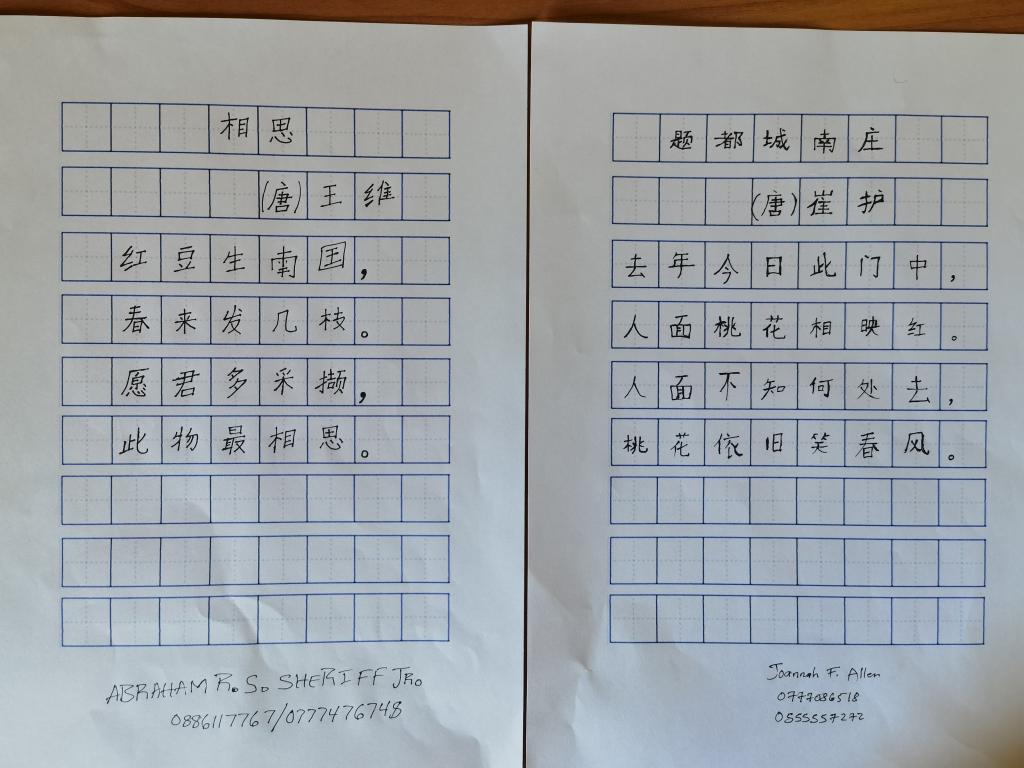 相思
(唐)王维
红豆生南国,
春来发几枝。
愿君多采撷,
此物最相思。
ABRAHAM R. S. SHERIFF JR.
0886117767/0777476748
题都城南庄
(唐)崔护
去年今日此门中,
人面桃花相映红。
人面不知何处去,
桃花依旧笑春风。
Joannah F. Allen
0777086518
0555557272